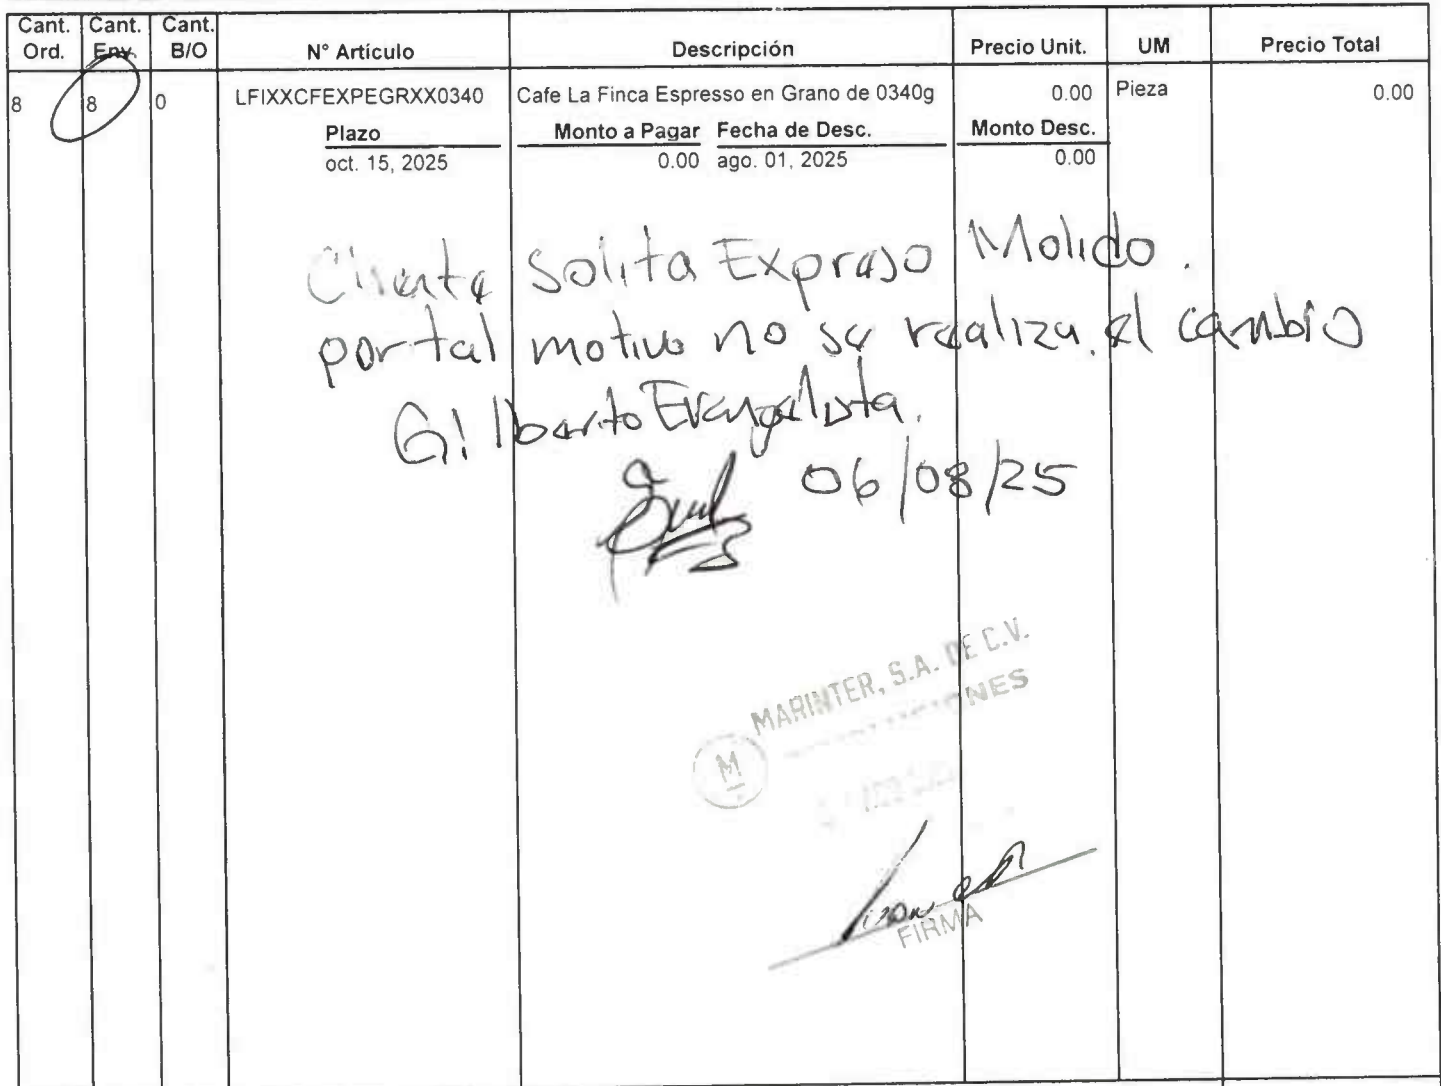 Cant. Ord. Cant. Env. Cant. B/O N° Artículo Descripción Precio Unit. UM Precio Total
8 8 0 LFIXXCFEXPEGRXX0340 Cafe La Finca Espresso en Grano de 0340g 0.00 Pieza 0.00
Plazo Monto a Pagar Fecha de Desc. Monto Desc.
oct. 15, 2025 0.00 ago. 01, 2025 0.00
Cliente Solita Expreso Molido.
por tal motivo no se realiza el cambio
Gilberto Evangelista.
06/08/25
MARINTER, S.A. DE C.V.
M
FIRMA